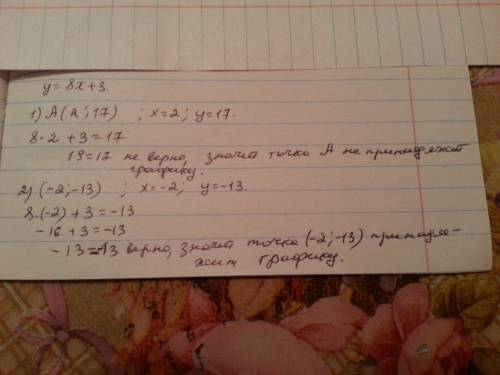 y = 8x+3.
1) A(2;17) ; x=2; y=17.
8·2+3=17
19=17 не верно, значит точка А не принадлежит
графику.
2) (-2;-13) ; x=-2; y=-13.
8·(-2)+3=-13
-16+3=-13
-13=-13 верно, значит точка (-2;-13) принадле-
жит графику.